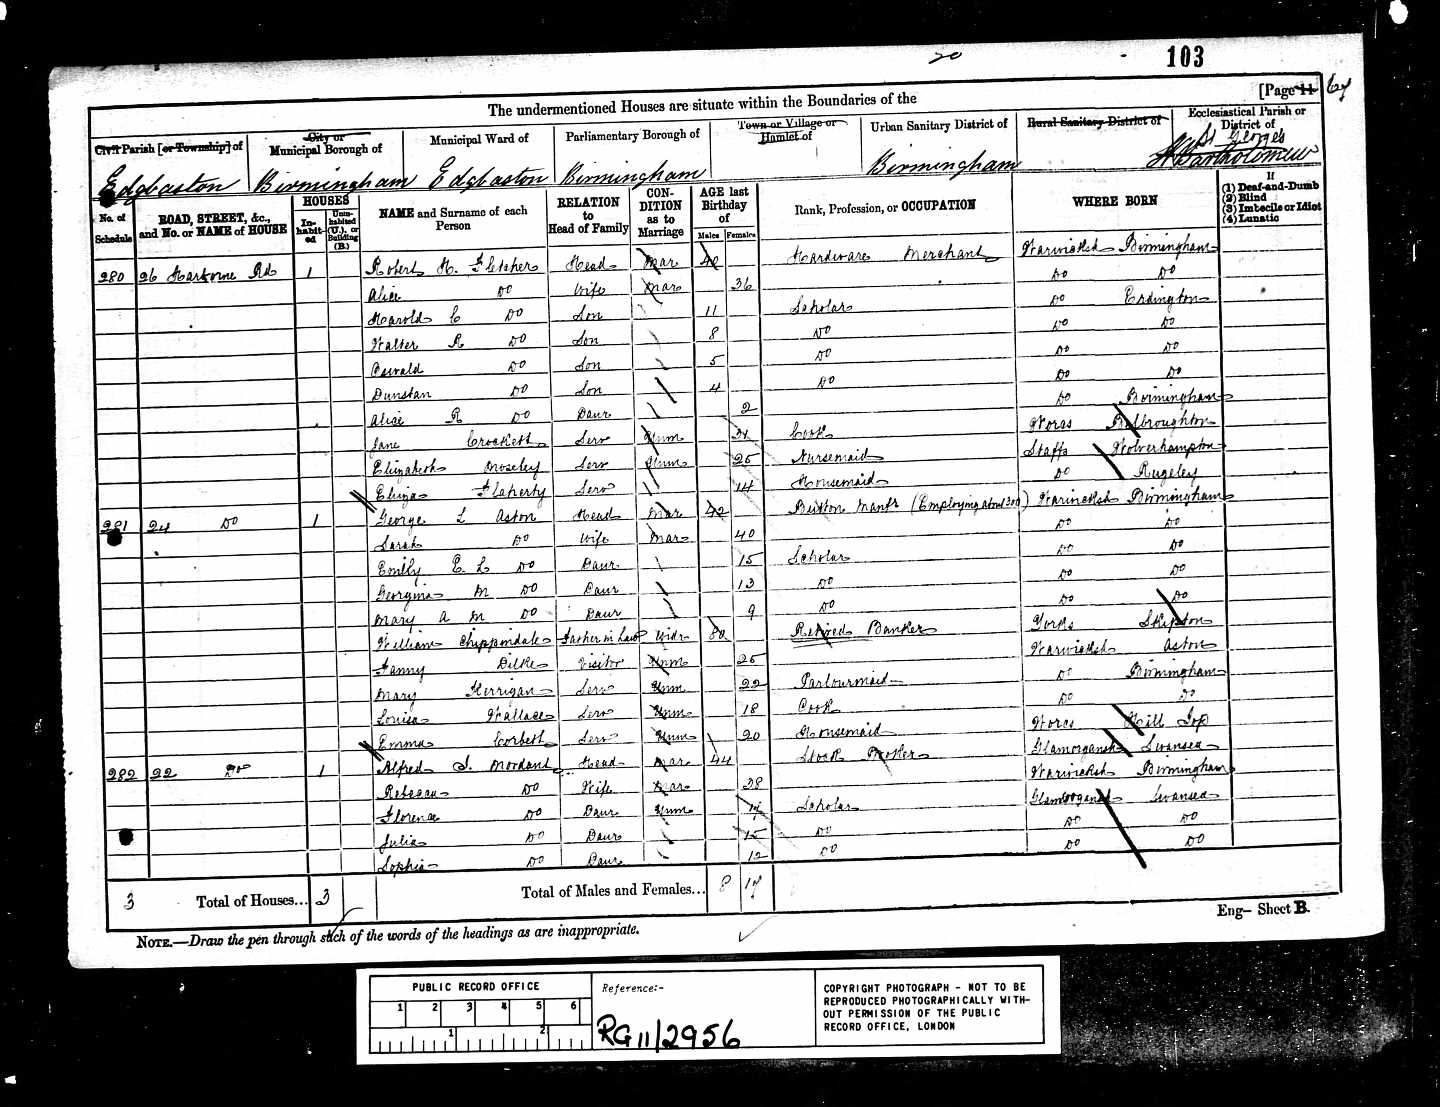 20
103
[Page 11 67
The undermentioned Houses are situate within the Boundaries of the
Civil Parish [or Township] of
City or Municipal Borough of
Municipal Ward of
Parliamentary Borough of
Town or Village or Hamlet of
Urban Sanitary District of
Rural Sanitary District of
Ecclesiastical Parish or District of
Edgbaston Birmingham Edgbaston Birmingham Birmingham St George's St Bartholomew
No. of Schedule
ROAD, STREET, &c., and No. or NAME of HOUSE
HOUSES
In-habit-ed
Unin-habited (U.), or Building (B.)
NAME and Surname of each Person
RELATION to Head of Family
CON-DITION as to Marriage
AGE last Birthday of
Males Females
Rank, Profession, or OCCUPATION
WHERE BORN
If
(1) Deaf-and-Dumb
(2) Blind
(3) Imbecile or Idiot
(4) Lunatic
280 26 Harborne Rd 1 Robert H. Fletcher Head Mar 40 Hardware Merchant Warwicksh Birmingham
Alice Do Wife Mar 36 Do Do
Harold C Do Son 11 Scholar Do Erdington
Walter R Do Son 8 Do Do Do
Oswald Do Son 5 Do Do Do
Dunstan Do Son 4 Do Do Do
Alice R Do Daur 2 Do Birmingham
Jane Crockett Serv Unm Cook Worcs Belbroughton
Elizabeth Moseley Serv Unm 25 Nursemaid Staffs Wolverhampton
Eliza Flaherty Serv 14 Housemaid Do Rugeley
281 24 Do 1 George L Aston Head Mar 42 Button Manfr (Employing about 300) Warwicksh Birmingham
Sarah Do Wife Mar 40 Do Do
Emily E. L Do Daur 15 Scholar Do Do
Georgina M Do Daur 13 Do Do Do
Mary A M Do Daur 9 Do Do Do
William Chippindale Father in Law Widr 80 Retired Banker Yorks Skipton
Fanny Dilke Visitor Unm 25 Warwicksh Aston
Mary Kerrigan Serv Unm 22 Parlourmaid Do Birmingham
Louisa Wallace Serv Unm 18 Cook Do Do
Emma Corbett Serv Unm 20 Housemaid Worcs Hill Top
282 22 Do 1 Alfred J. Mordaunt Head Mar 44 Stock Broker Glamorgansh Swansea
Rebecca Do Wife Mar 38 Warwicksh Birmingham
Florence Do Daur Unm 17 Scholar Glamorgansh Swansea
Julia Do Daur 15 Do Do Do
Sophia Do Daur 12 Do Do Do
3 Total of Houses... 3 Total of Males and Females... 8 17
NOTE.—Draw the pen through such of the words of the headings as are inappropriate.
Eng— Sheet B.
PUBLIC RECORD OFFICE
1 2 3 4 5 6
1 2
Reference:-
RG11/2956
COPYRIGHT PHOTOGRAPH - NOT TO BE
REPRODUCED PHOTOGRAPHICALLY WITH-
OUT PERMISSION OF THE PUBLIC
RECORD OFFICE, LONDON